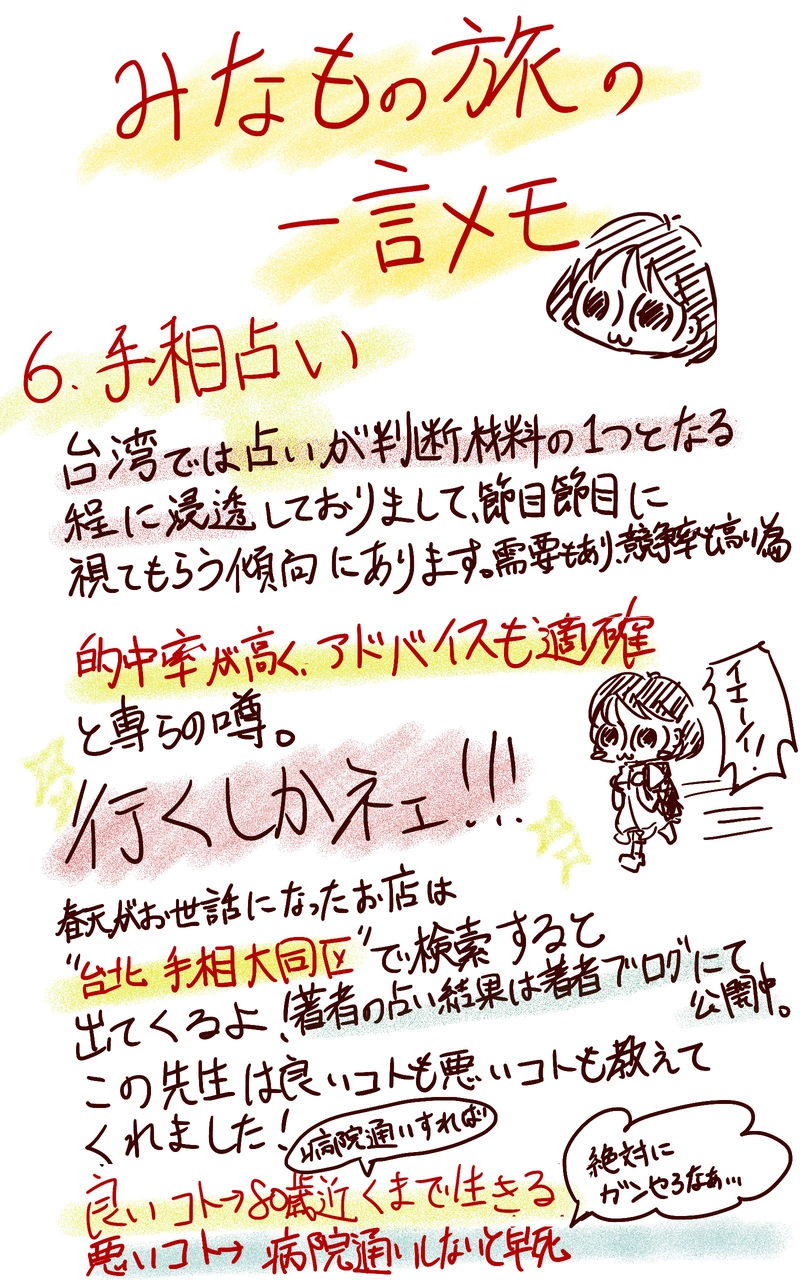 みなもの旅の
一言メモ
6.手相占い
台湾では占いが判断材料の1つとなる
程に浸透しておりまして、節目節目に
視てもらう傾向にあります。需要もあり、競争率も高い為
的中率が高く、アドバイスも適確
と専らの噂。
イエーイ!!
行くしかネェ!!!
春天がお世話になったお店は
"台北 手相大同区"で検索すると
出てくるよ!著者の占い結果は著者ブログにて
公開中。
この先生は良いコトも悪いコトも教えて
くれました!
病院通いすれば
絶対に
ガンやろなぁ…
良いコト→80歳近くまで生きる
悪いコト→病院通いしないと早死